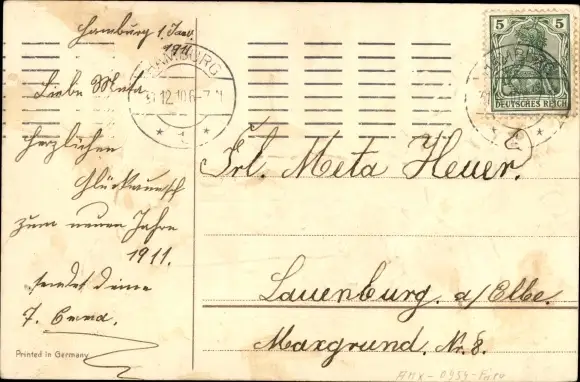 Hamburg 1. Jan.
1911
Liebe Meta
Herzlichen
Glückwunsch
zum neuen Jahre
1911.
sendet deine
Printed in Germany
HAMBURG
31.12.10.6-7.N
* 1 *
5 5
DEUTSCHES REICH
Frl. Meta Heuer.
Lauenburg. a/Elbe.
Maxgrund. Nr. 8.